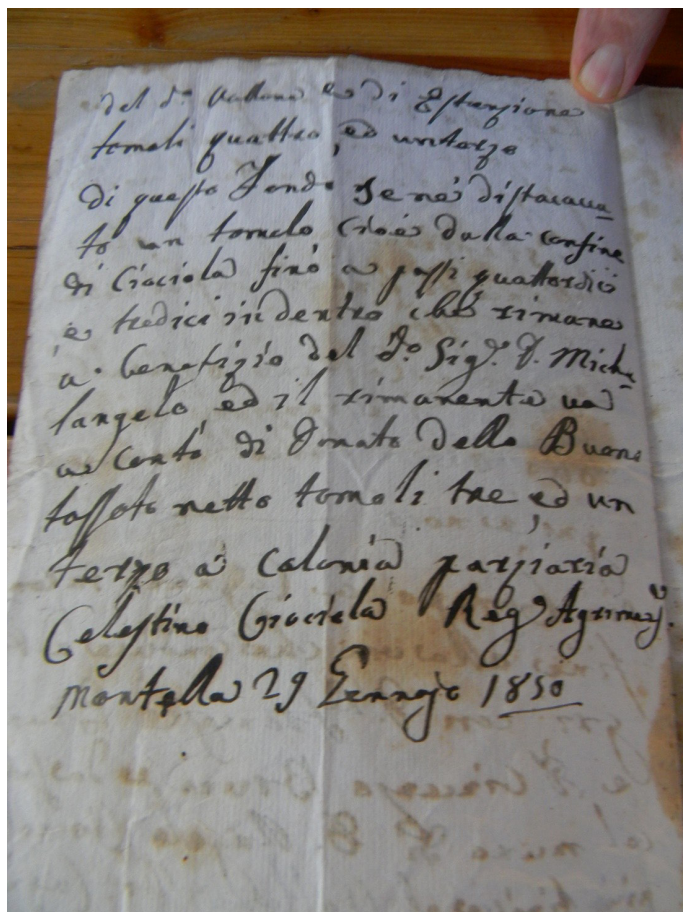 del do. Vallone e di Estenzione
tomoli quattro, ed un terzo
di questo Fondo se ne distacca
to un tomolo cioè dalla confine
di Ciociola fino a passi quattordici
e tredici in dentro che rimane
a benefizio del do. Sigr. D. Miche
langelo, ed il rimanente va
a conto di Donato dello Buono
tassato netto tomoli tre, ed un
terzo a colonia parziaria
Celestino Ciociola Rego Agrimens.
Montella 29 Gennajo 1850